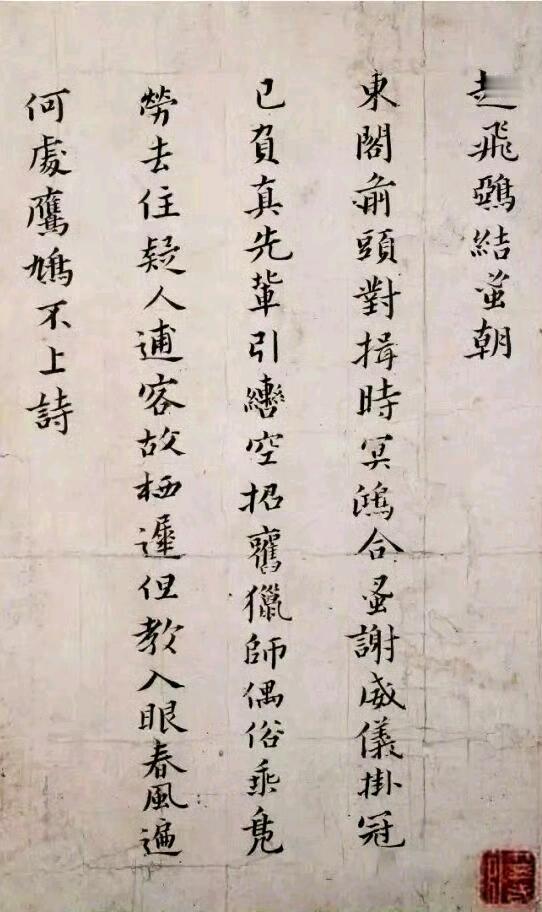 飛鵶結蚤朝
東閣前頭對揖時冥鴻合蚤謝威儀掛冠
已負真先輩引轡空招舊獵師偶俗乘鳧
勞去住疑人逋客故栖遲但教入眼春風遍
何處鷹鳩不上詩